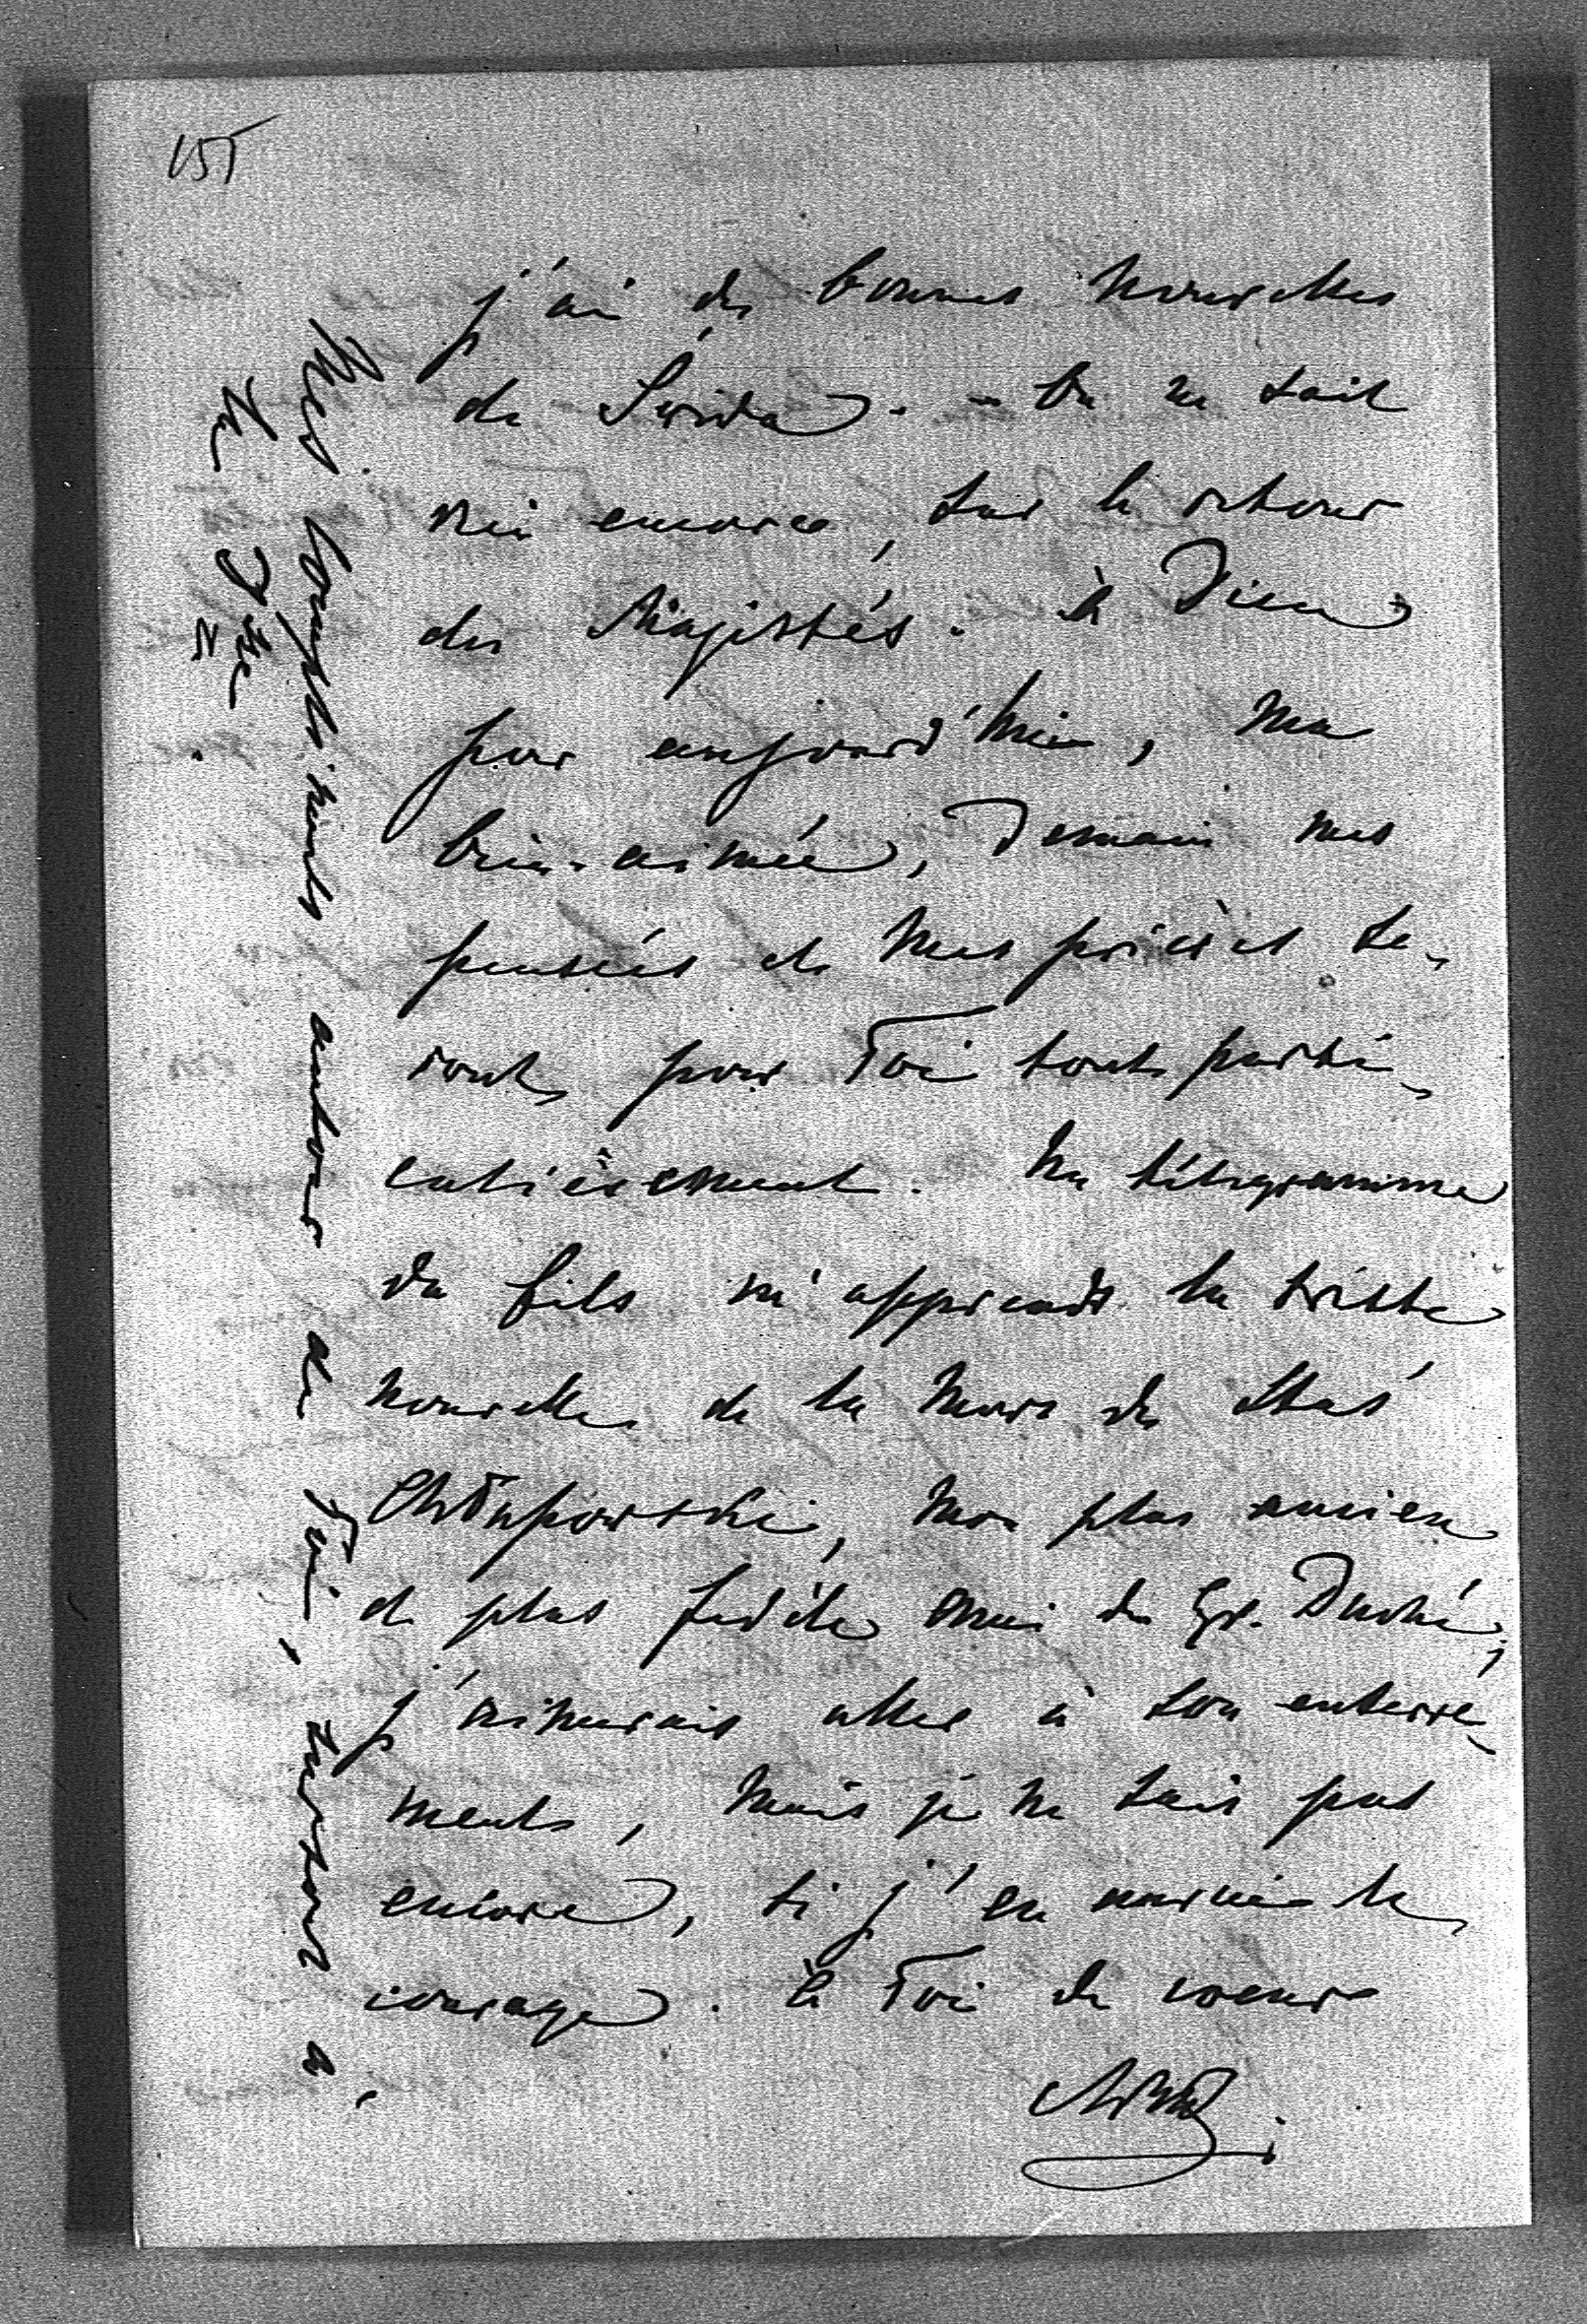 155
j'ai de bonnes nouvelles
de Świda. - On ne sait
rien encore, sur le retour
des Majestés. à Dieu
pour aujourd'hui, ma
bien-aimée, Demain mes
pensées et mes prières se-
ront pour Toi tout parti-
culièrement. Un télégramme
du fils m'apprends la triste
nouvelle de la mort de Staś
Chłapowski, mon plus ancien
et plus fidèle ami du Gr. Duché,
j'aimerais aller à son enterre-
ment, mais je ne sais pas
encore, si j'en aurais le
courage. à Toi de coeur
Mes compliments autour de Toi, surtout à
la